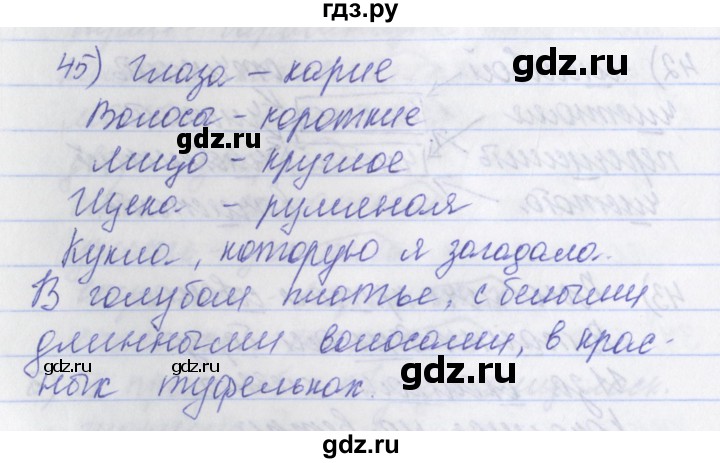 гдз.ру
45) Глаза - карие
Волосы - короткие
gdz.ru
gdz.ru
Лицо - круглое
Щека - румяная
Кукла, которую я загадала.
В голубом платье, с белыми
длинными волосами, в крас-
gdz.ru
gdz.ru
gdz.ru
ных туфельках.
gdz.ru